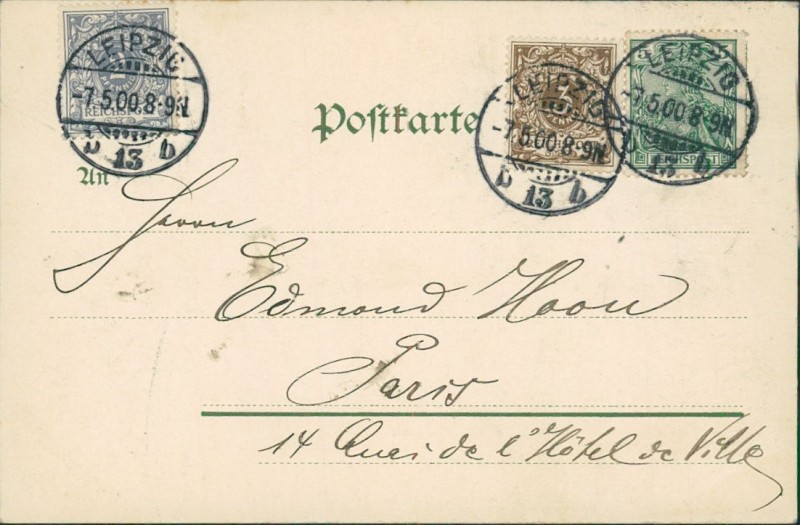 LEIPZIG
-7.5.00.8-9N.
REICHSPOST
b 13 b
LEIPZIG
3
-7.5.00.8-9N.
b 13 b
5
LEIPZIG
-7.5.00.8-9N.
REICHSPOST
b 13 b
Postkarte
An
Herrn
Edmond Haon
Paris
14 Quai de l'Hôtel de Ville